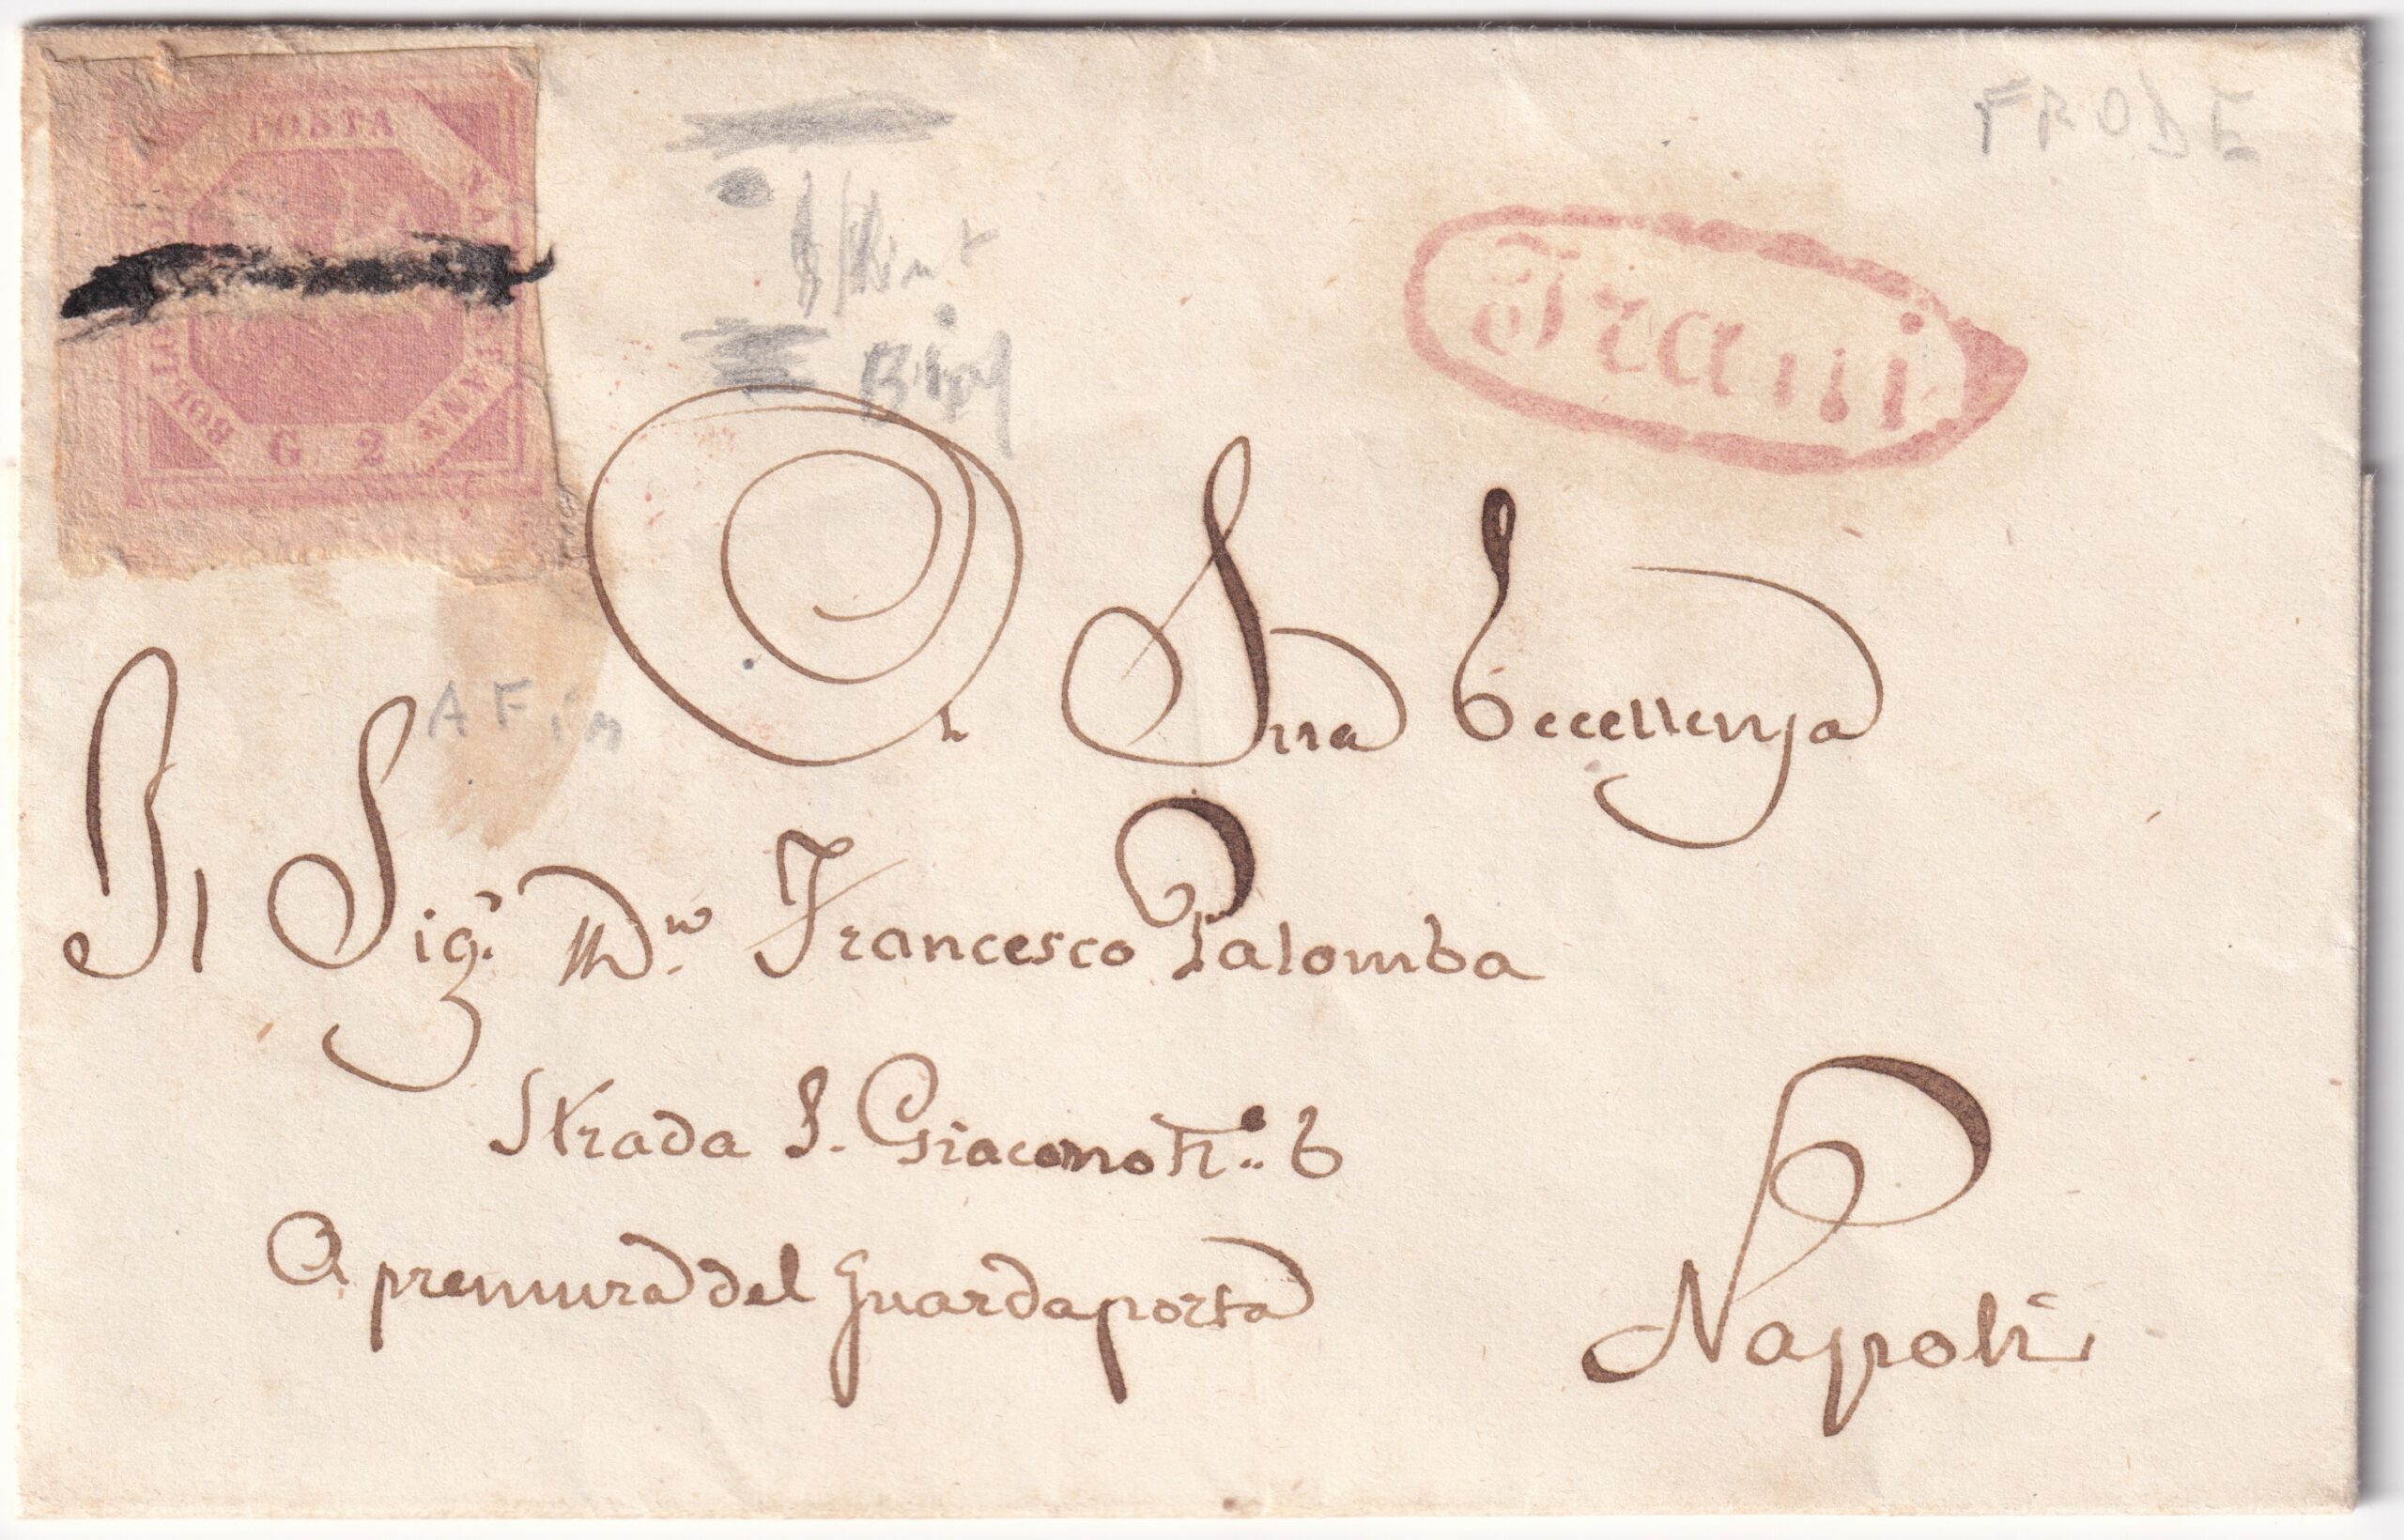 POSTA
NA
BOLLO
G 2
FRODE
Trani
A Fir
A Sua Eccellenza
Il Sig.r D.n Francesco Palomba
Strada S. Giacomo N.o 6
A premura del Guardaporta
Napoli